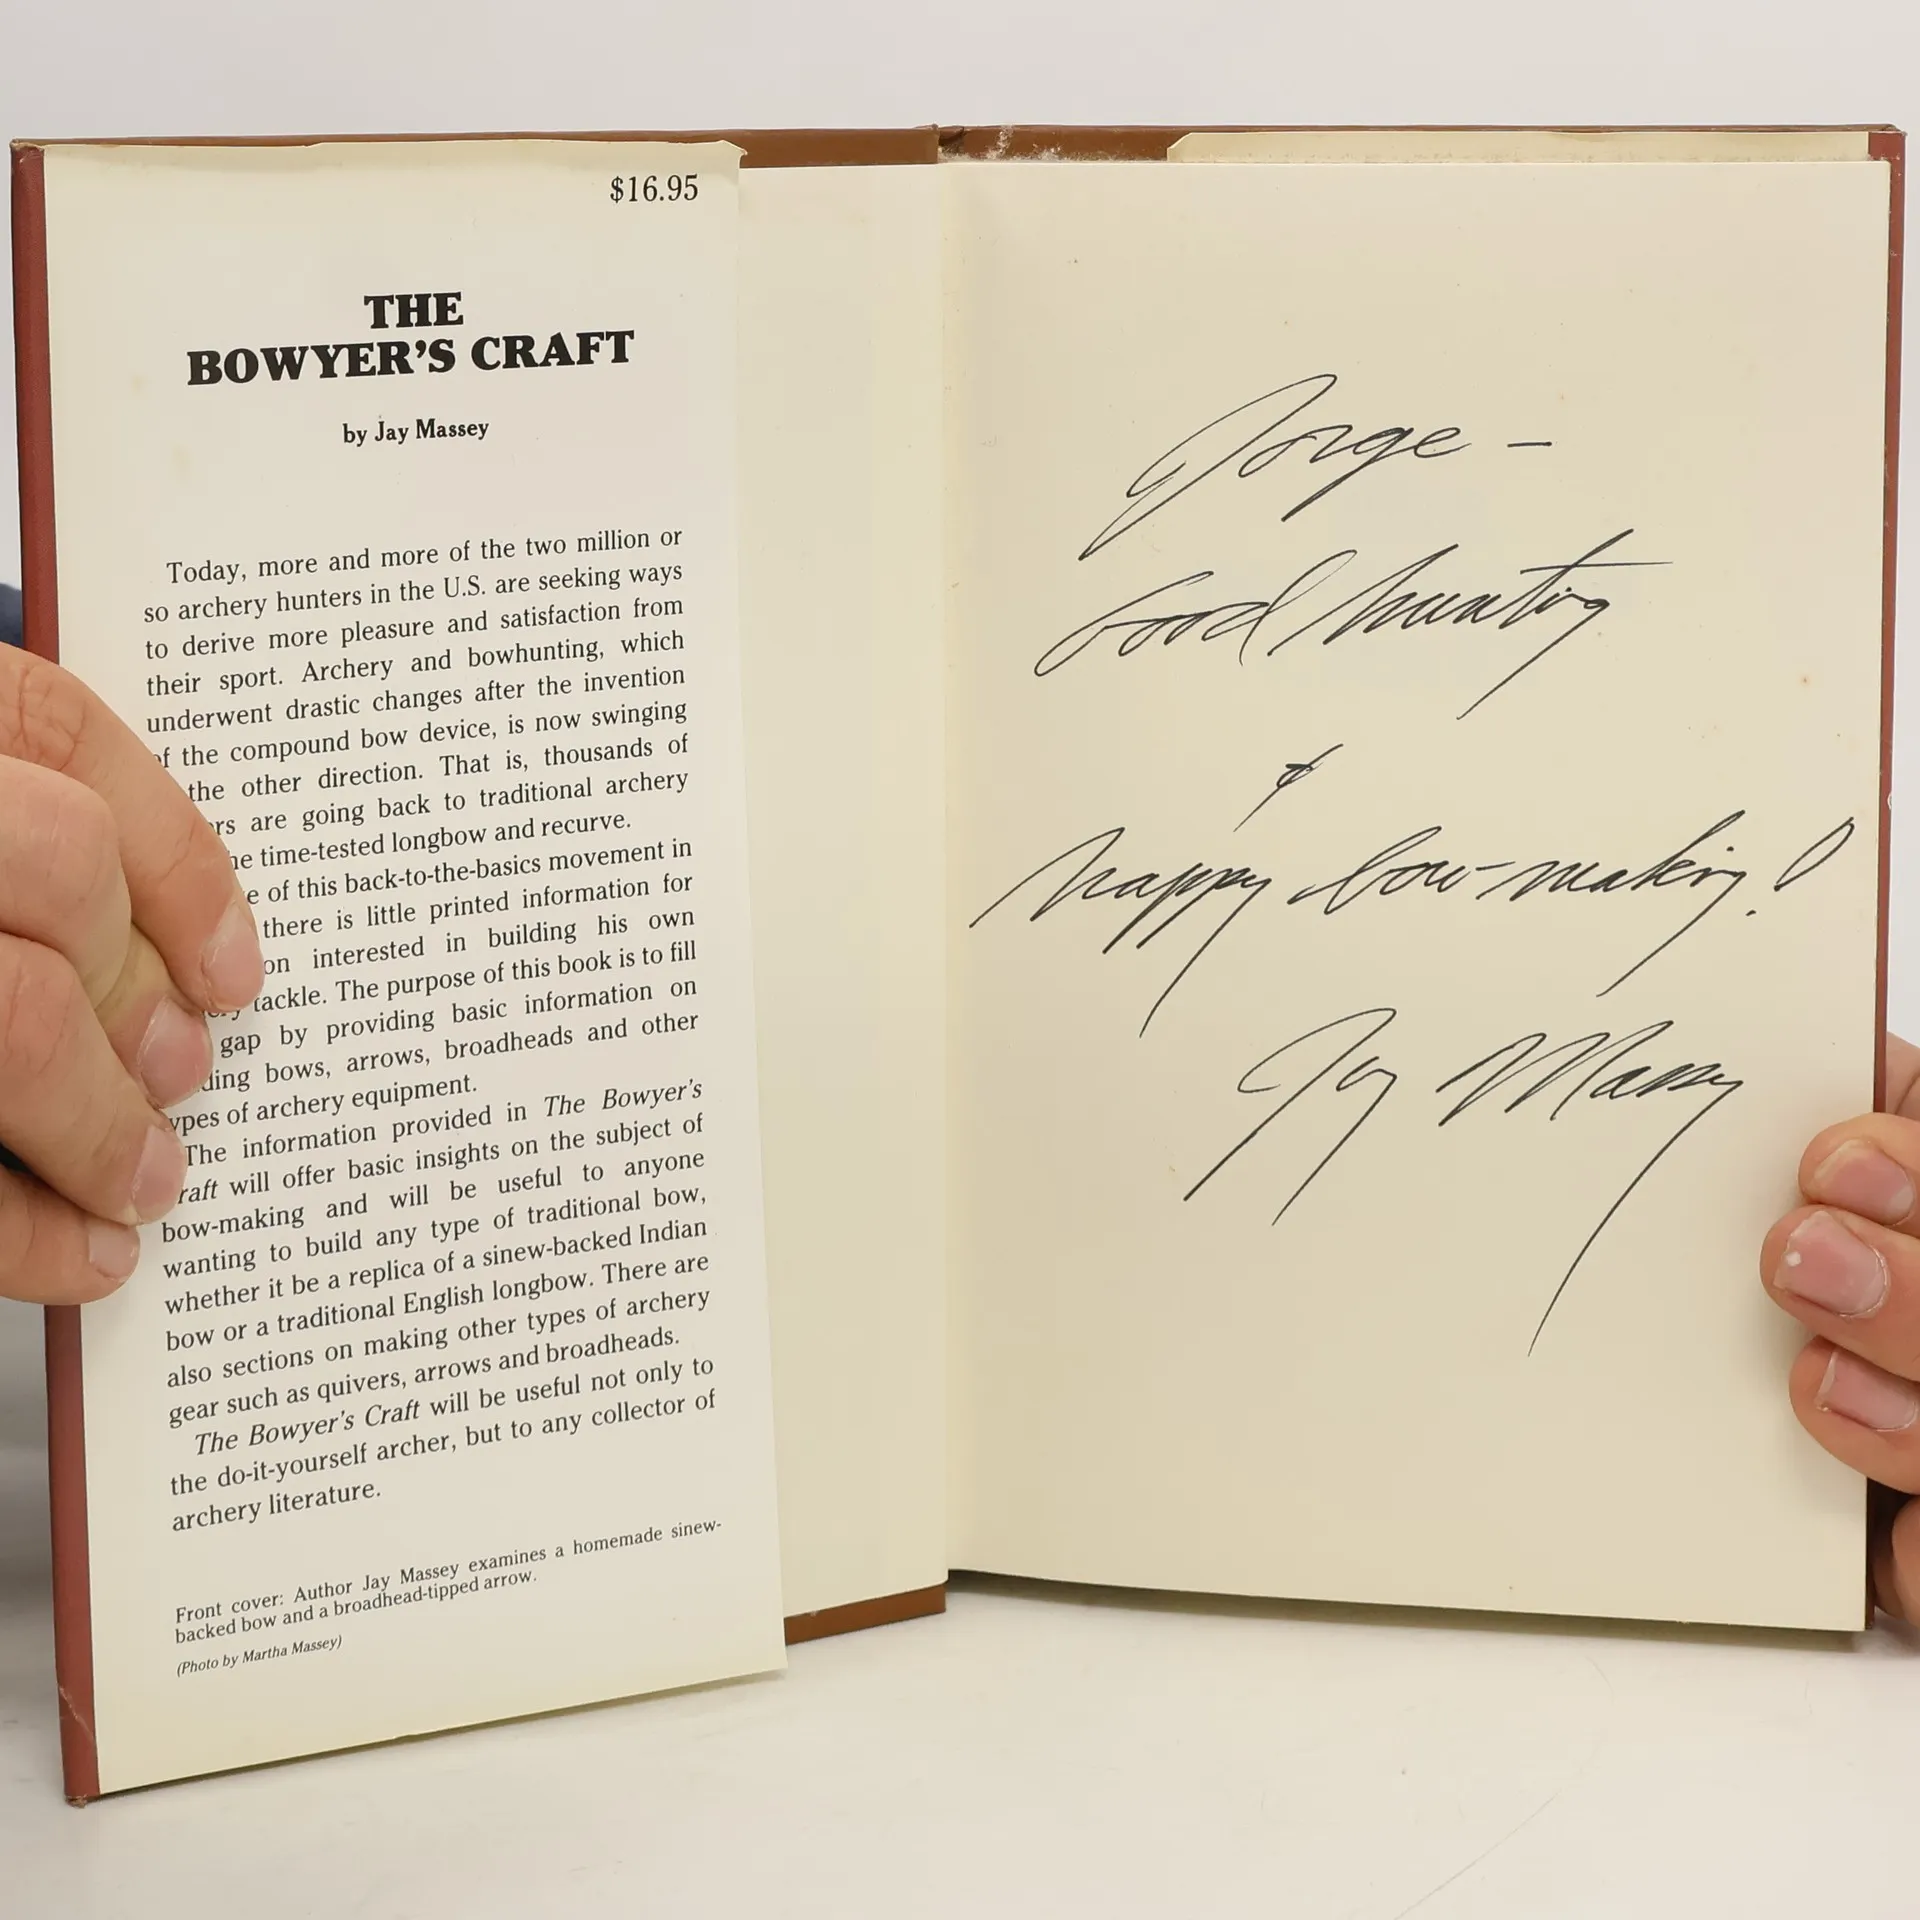 $16.95
THE
BOWYER'S CRAFT
by Jay Massey
Today, more and more of the two million or
so archery hunters in the U.S. are seeking ways
to derive more pleasure and satisfaction from
their sport. Archery and bowhunting, which
underwent drastic changes after the invention
of the compound bow device, is now swinging
the other direction. That is, thousands of
are going back to traditional archery
time-tested longbow and recurve.
of this back-to-the-basics movement in
there is little printed information for
interested in building his own
tackle. The purpose of this book is to fill
gap by providing basic information on
bows, arrows, broadheads and other
types of archery equipment.
The information provided in The Bowyer's
Craft will offer basic insights on the subject of
bow-making and will be useful to anyone
wanting to build any type of traditional bow,
whether it be a replica of a sinew-backed Indian
bow or a traditional English longbow. There are
also sections on making other types of archery
gear such as quivers, arrows and broadheads.
The Bowyer's Craft will be useful not only to
the do-it-yourself archer, but to any collector of
archery literature.
Front cover: Author Jay Massey examines a homemade sinew-
backed bow and a broadhead-tipped arrow.
(Photo by Martha Massey)
Jorge –
Good hunting
&
happy bow-making!
Jay Massey